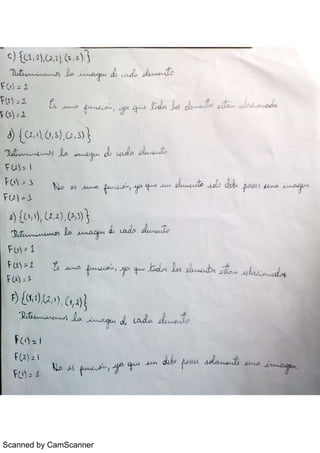 c) {(1,2),(2,1),(2,2)}
Determinemos la imagen de cada elemento
F(1)=2
F(2)=2
F(3)=2
Es una función, ya que todos los elementos estan relacionados
d) {(2,1),(1,3),(2,3)}
Determinemos la imagen de cada elemento
F(2)=1
F(1)=3
No es una función, ya que un elemento solo debe poseer una imagen
F(2)=3
e) {(1,1),(2,2),(3,3)}
Determinemos la imagen de cada elemento
F(1)=1
F(2)=2
Es una función, ya que todos los elementos estan relacionados
F(3)=3
F) {(1,1),(2,1),(1,2)}
Determinemos la imagen de cada elemento
F(1)=1
F(2)=1
No es función, ya que un debe poseer solamente una imagen
F(1)=2
Scanned by CamScanner